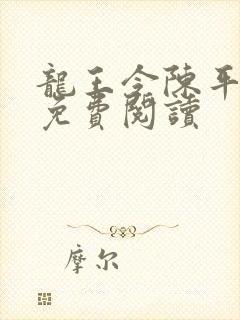 龍王令陳平
免費閱讀
摩尔